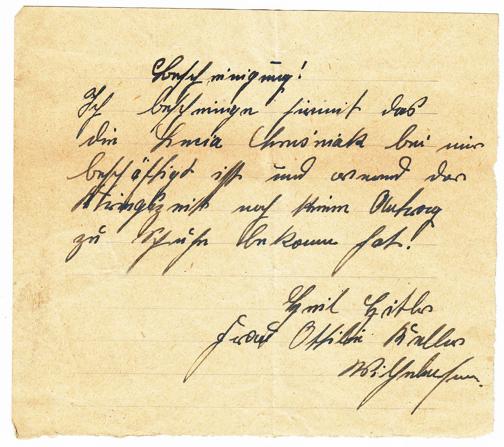 Bescheinigung!
Ich bescheinge hirmit das
die Lucia Chrusniak bei mir
beschäftigt ist und wärend der
Kriegszeit noch keinen Antrag
zu Schuhe bekomm hat!
Heil Hitler
Frau Ottilie Keller